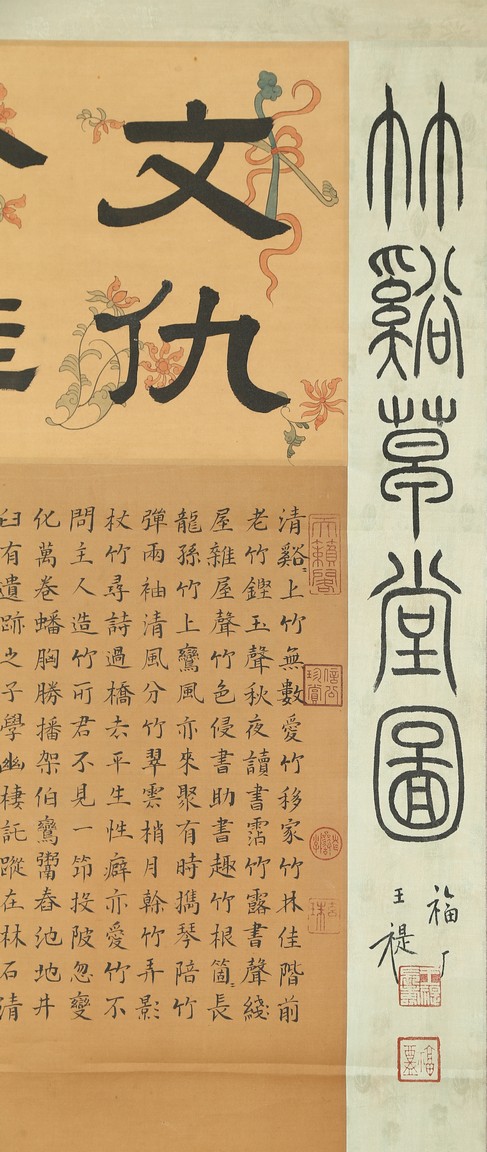 竹谿草堂圖
福厂
王禔
福盦
文仇
天籟閣
信公珍賞
清谿〻上竹無數愛竹移家竹林佳階前
老竹鏗玉聲秋夜讀書霑竹露書聲綫
屋雜屋聲竹色侵書助書趣竹根箇〻長
龍孫竹上鸞風亦來聚有時攜琴陪竹
彈兩袖清風分竹翠雲梢月幹竹弄影
杖竹尋詩過橋去平生性癖亦愛竹不
問主人造竹所君不見一節投陂忽變
化萬卷蟠胸勝播架伯鸞鬻舂池地井
臼有遺跡之子學幽棲託蹤在林石清